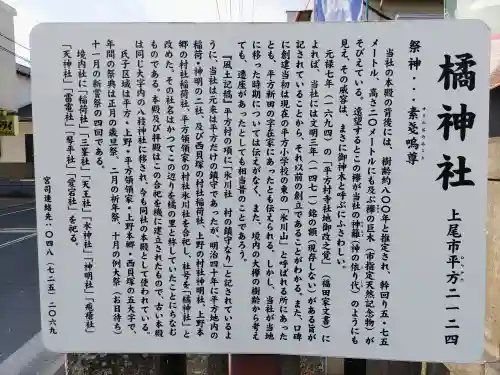 橘神社
上尾市平方二一二四
祭神・・・素戔嗚尊
当社の本殿の背後には、樹齢約八〇〇年と推定され、幹回り五・七五
メートル、高さ二〇メートルにも及ぶ欅の巨木(市指定天然記念物)が
そびえている。遠望するとこの欅が当社の神籬(神の依り代)のようにも
見え、その威容は、まさに御神木と呼ぶにふさわしい。
元禄七年(一六九四)の「平方村寺社地御改之覚」(福田家文書)に
よれば、当社には文明三年(一四七一)銘の額(現存しない)がある旨が
記されていることから、それ以前の創立であることがわかる。また、口碑
に創建当初は現在の平方小学校の東の「氷川山」と呼ばれる所にあった
とも、平方新田の字在家にあったとも伝えられる。しかし、当社が当地
に移った時期については伝えがなく、また、境内の大欅の樹齢から考え
ても、遷座があったとしても相当昔のことであろう。
『風土記稿』平方村の項に「氷川社 村の鎮守なり」と記されているよ
うに、当社は元来は平方だけの鎮守であったが、明治四十年に平方地内の
稲荷・神明の二社、及び西貝塚の村社稲荷社、上野の村社神明社、上野本
郷の村社稲荷社、平方領領家の村社氷川社を合祀し、社号を「橘神社」と
改めた。その社名はかつてこの辺りを橘の里と称していたことにちなむ
ものである。本殿及び拝殿はこの合祀を機に建立されたもので、古い本殿
は同じ大字内の八枝神社に移され、今も同社の本殿として使われている。
氏子区域は平方・上野・平方領領家・上野本郷・西貝塚の五大字で、
年間の祭典は正月の歳旦祭、二月の祈年祭、十月の例大祭(お日待ち)
十一月の新嘗祭の四回である。
境内社に「稲荷社」「三峯社」「天王社」「水神社」「神明社」「疱瘡社」
「天神社」「雷電社」「琴平社」「愛宕社」を祀る。
宮司連絡先:〇四八(七二五)二〇六九